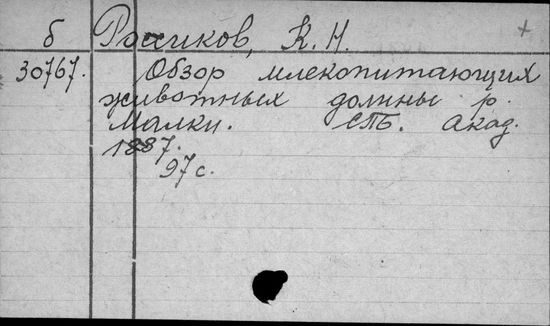 б Россиков, К. Н. +
30767. Обзор млекопитающих
животных долины р.
Малки. СПБ. Акад.
1887.
97 с.